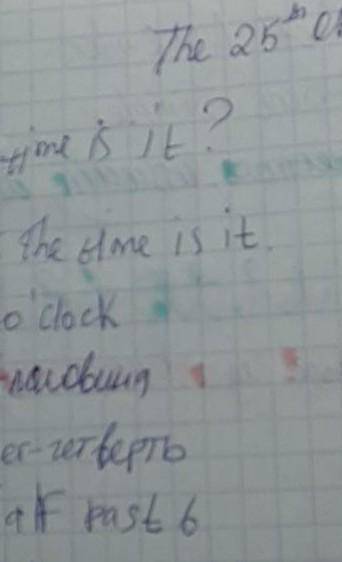 The 25th
time is it?
The time is it.
o'clock
половина
er-четверть
alf past 6